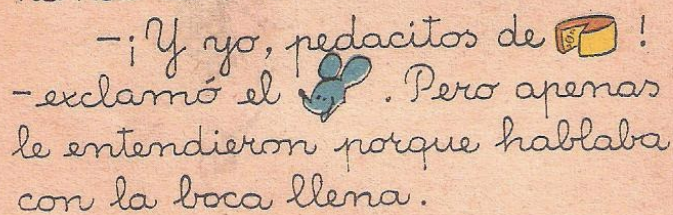 -¡Y yo, pedacitos de !
-exclamó el . Pero apenas
le entendieron porque hablaba
con la boca llena.